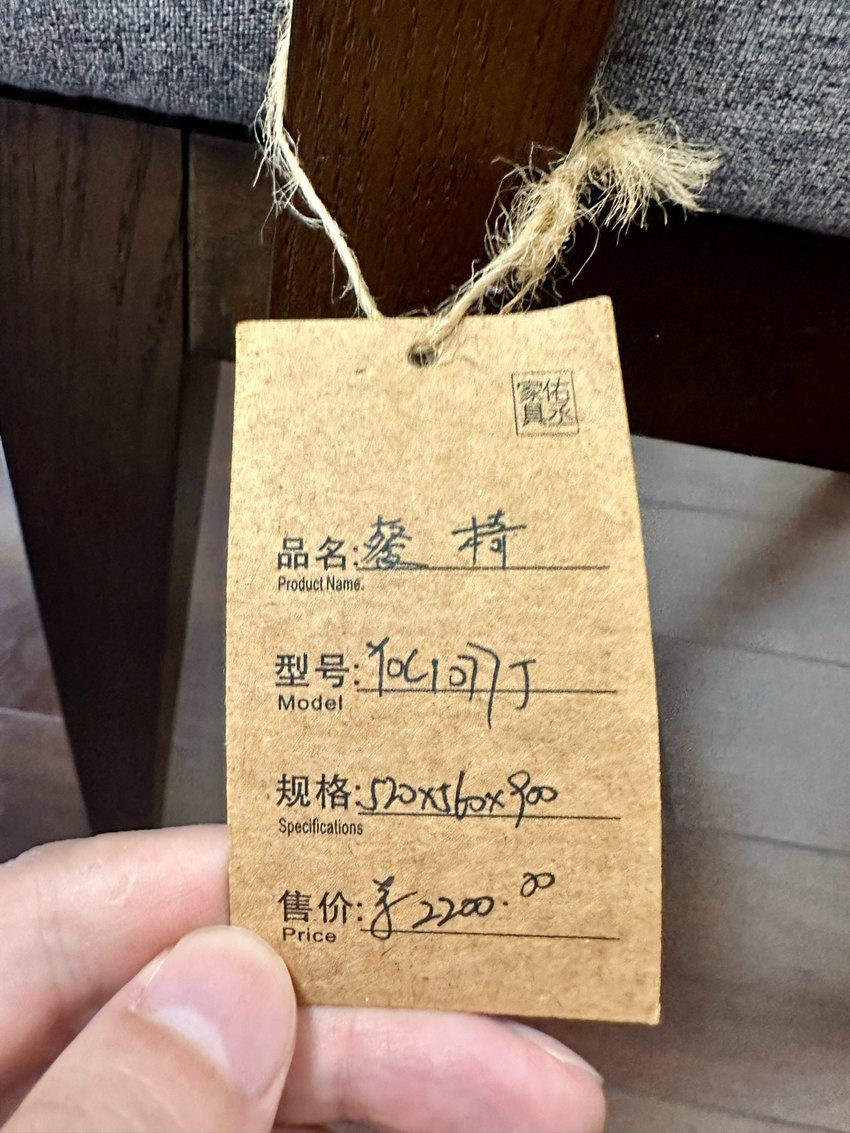 佑丞
家具
品名:餐椅
Product Name.
型号:YOC1077J
Model
规格:520x560x900
Specifications
售价:¥2200.00
Price